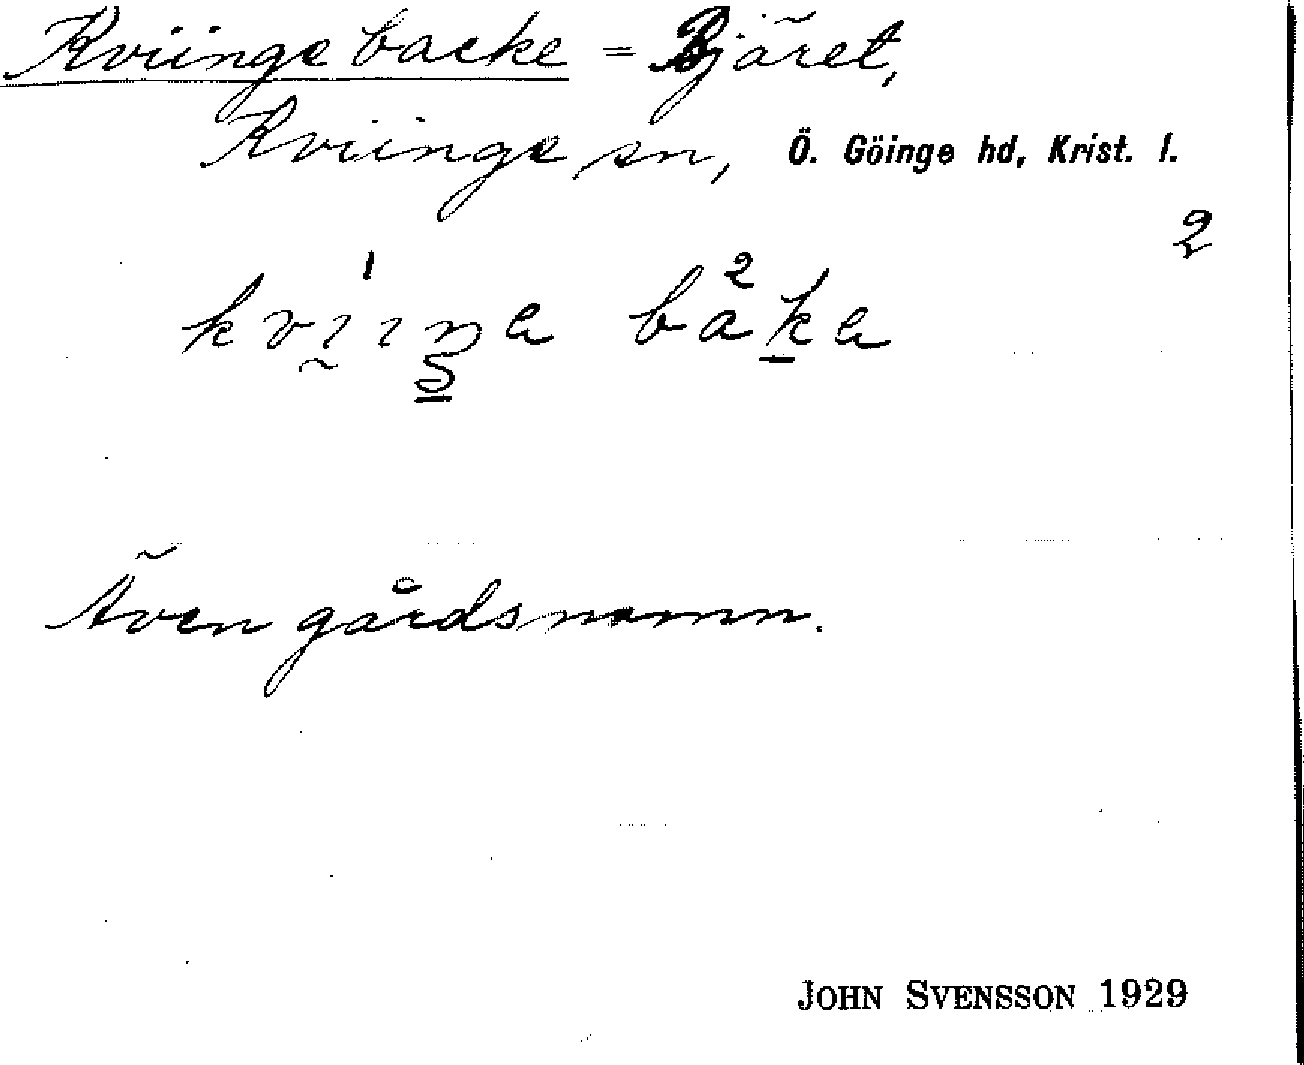 Kviinge backe = Bjäret,
Kviinge sn, Ö. Göinge hd, Krist. l.
2
Även gårdsnamn.
JOHN SVENSSON 1929